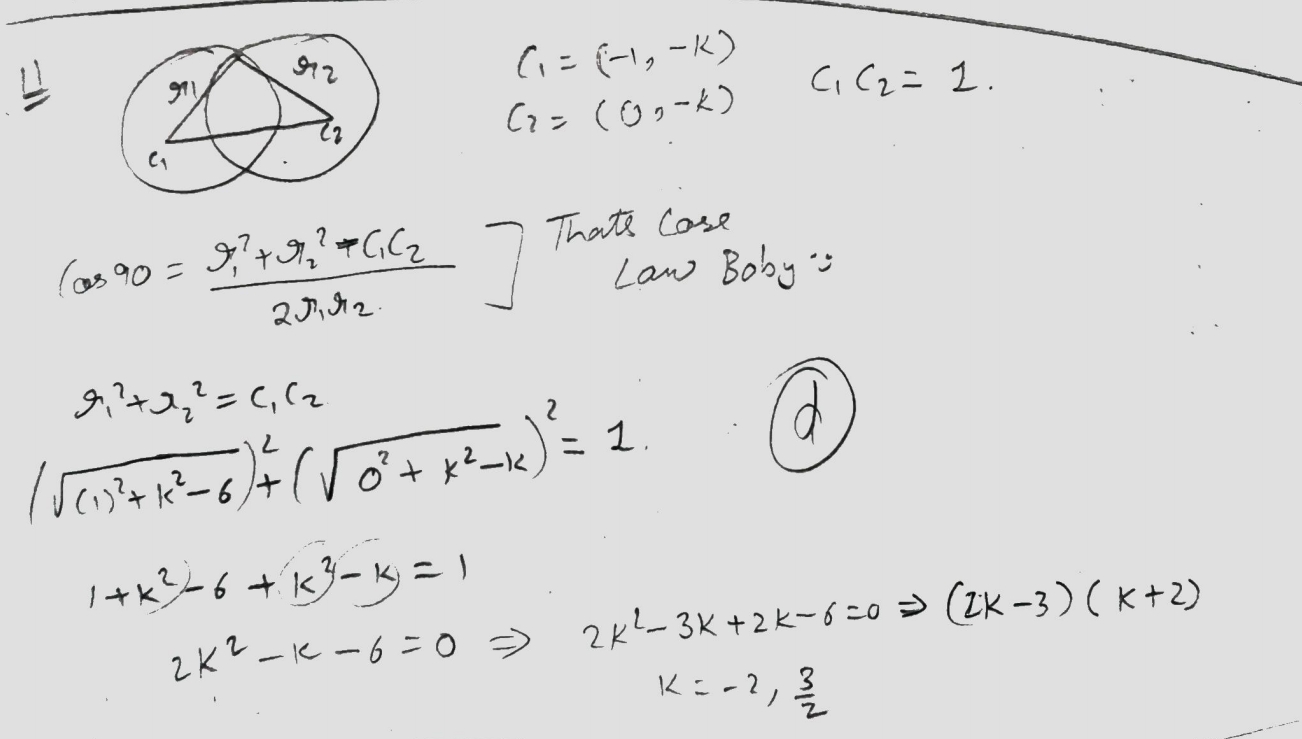 11
r1 r2
C1 C2
C1 = (-1, -K)
C2 = (0, -k)
C1 C2 = 1.
Cos 90 = (r1² + r2² - C1C2) / 2r1r2.
] Thats Cose
Law Boby
r1² + r2² = C1C2
(√((1)² + k² - 6))² + (√(0² + k² - k))² = 1.
d
1 + k² - 6 + k² - k = 1
2k² - k - 6 = 0 ⇒ 2k² - 3K + 2k - 6 = 0 ⇒ (2K - 3)(K + 2)
K = -2, 3/2